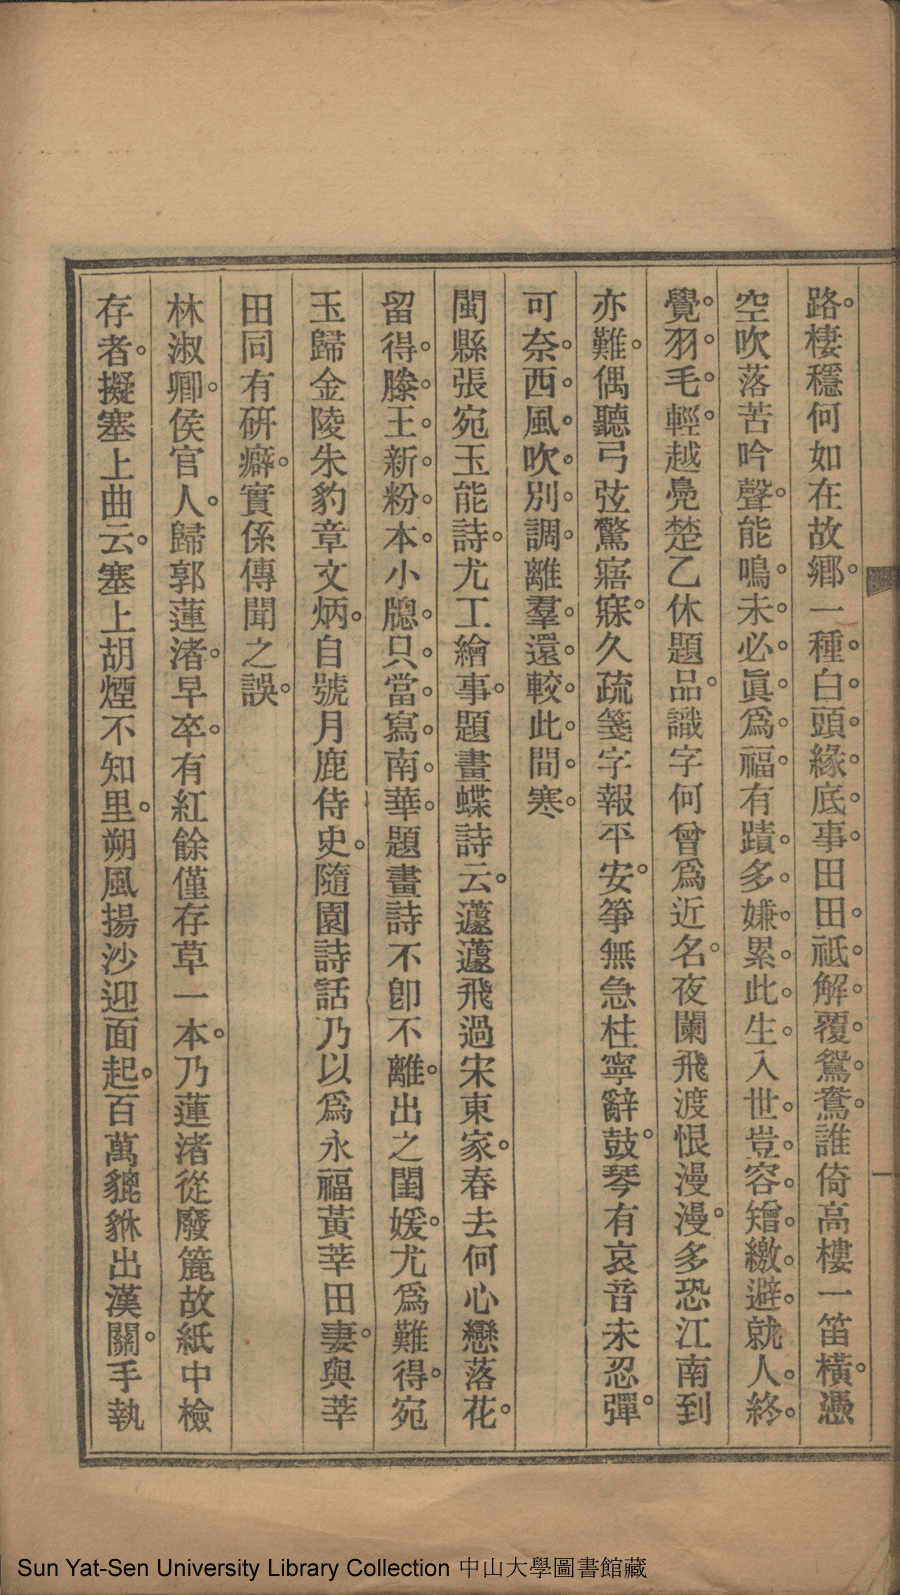 路。棲穩何如在故鄉。一種。白。頭。緣。底。事。田田。祗。解。覆。鴛。鴦。誰倚高樓一笛橫。憑
空吹落苦吟聲。能鳴。未。必。眞。爲。福。有蹟。多。嫌。累。此。生。入世。豈。容。矰。繳。避。就人。終。
覺。羽。毛。輕。越鳧楚乙休題品。識字何曾爲近名。夜闌飛渡恨漫漫。多恐江南到
亦難。偶聽弓弦驚寤寐。久疏箋字報平安。箏無急柱寧辭鼓。琴有哀音未忍彈。
可奈。西。風。吹。別。調。離羣。還。較。此。間。寒。
閩縣張宛玉能詩。尤工繪事。題畫蝶詩云。蘧蘧飛過宋東家。春去何心戀落花。
留得。滕。王。新。粉。本。小牕。只。當。寫。南。華。題畫詩不卽不離。出之閨媛。尤爲難得。宛
玉歸金陵朱豹章文炳。自號月鹿侍史。隨園詩話乃以爲永福黃莘田妻。與莘
田同有硏癖。實係傳聞之誤。
林淑卿。侯官人。歸郭蓮渚。早卒。有紅餘僅存草一本。乃蓮渚從廢簏故紙中檢
存者。擬塞上曲云。塞上胡煙不知里。朔風揚沙迎面起。百萬貔貅出漢關。手執
一
Sun Yat-Sen University Library Collection 中山大學圖書館藏